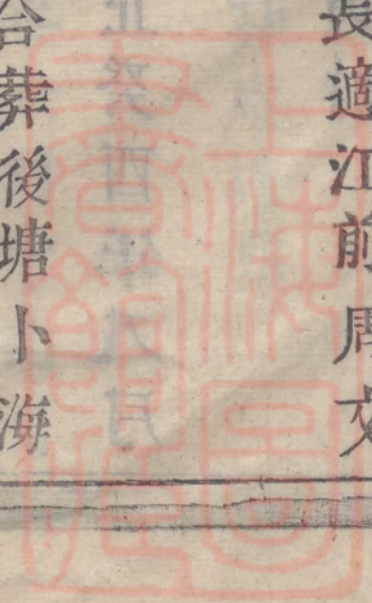 長適江前周文
合葬後塘卜海
上海圖
書館藏